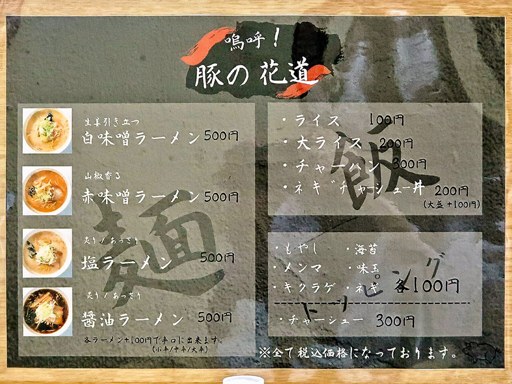 嗚呼!
豚の花道
生姜引き立つ
白味噌ラーメン 500円
山椒香る
赤味噌ラーメン 500円
炙り/あっさり
塩ラーメン 500円
炙り/あっさり
醤油ラーメン 500円
各ラーメン+100円で辛口に出来ます。
(小辛/中辛/大辛)
麺
・ライス 100円
・大ライス 200円
・チャーハン 300円
・ネギチャーシュー丼 200円
(大盛+100円)
飯
・もやし ・海苔
・メンマ ・味玉
・キクラゲ ・ネギ 各100円
・チャーシュー 300円
トッピング
※全て税込価格になっております。